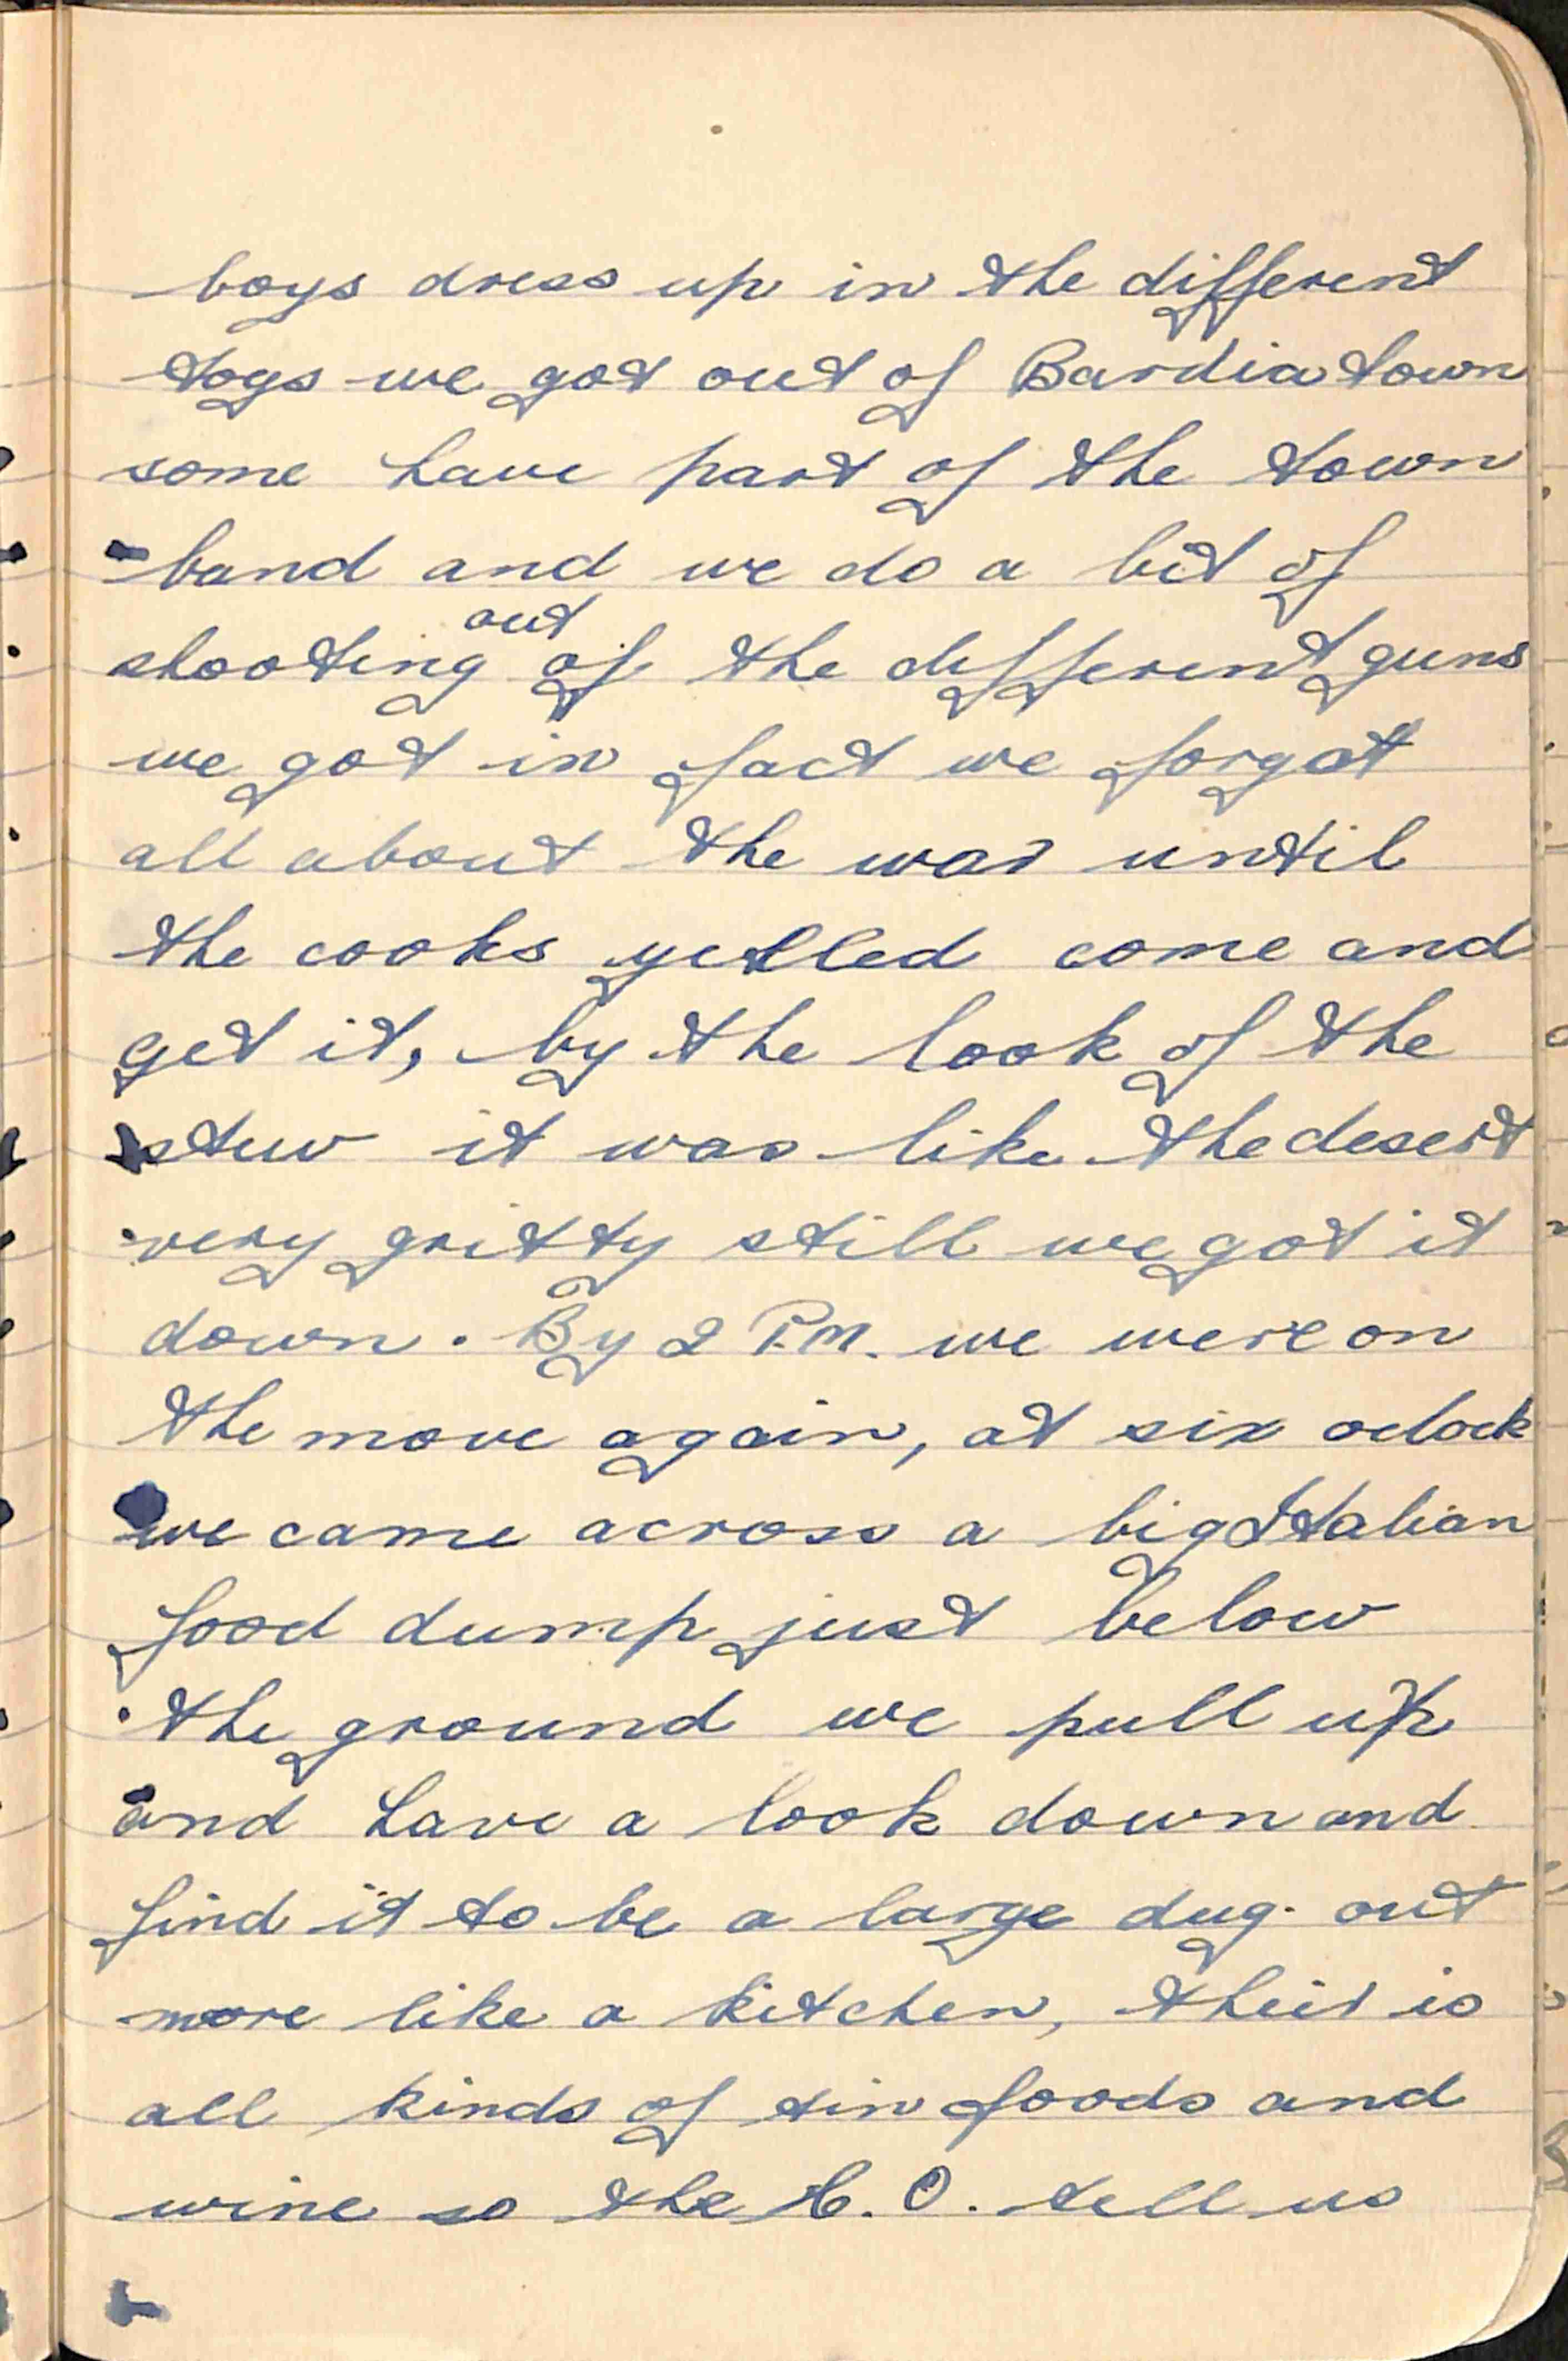 boys dress up in the different
togs we got out of Bardia town
some have part of the town
band and we do a bit of
out
shooting of the different guns
we got in fact we forgot
all about the war until
the cooks yelled come and
get it, by the look of the
stew it was like the desert
very gritty still we got it
down. By 2 P.M. we were on
the move again, at six oclock
we came across a big Italian
food dump just below
the ground we pull up
and have a look down and
find it to be a large dug-out
more like a kitchen, their is
all kinds of tin foods and
wine so the C.O. tell us